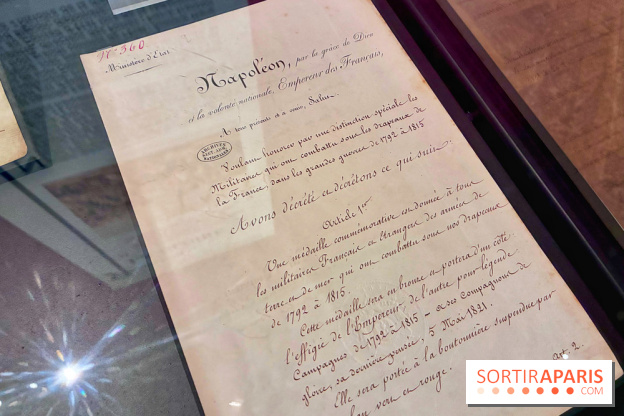 N° 360
Ministère d'État
Napoléon, par la grâce de Dieu
et la volonté nationale, Empereur des Français,
A tous présents et à venir, Salut.
ARCHIVES
NATIONALES
Voulant honorer par une distinction spéciale les
Militaires qui ont combattu sous les drapeaux de
la France, dans les grandes guerres de 1792 à 1815
Avons décrété et décrétons ce qui suit :
Article 1er
Une médaille commémorative est donnée à tous
les militaires Français et étrangers des armées de
terre et de mer qui ont combattu sous nos drapeaux
de 1792 à 1815.
Cette médaille sera en bronze et portera d'un côté
l'effigie de l'Empereur, de l'autre pour légende
Campagnes de 1792 à 1815 - à ses Compagnons de
gloire, sa dernière pensée, 5 Mai 1821.
Elle sera portée à la boutonnière suspendue par
vert et rouge.
Art. 2.
SORTIRAPARIS
.COM